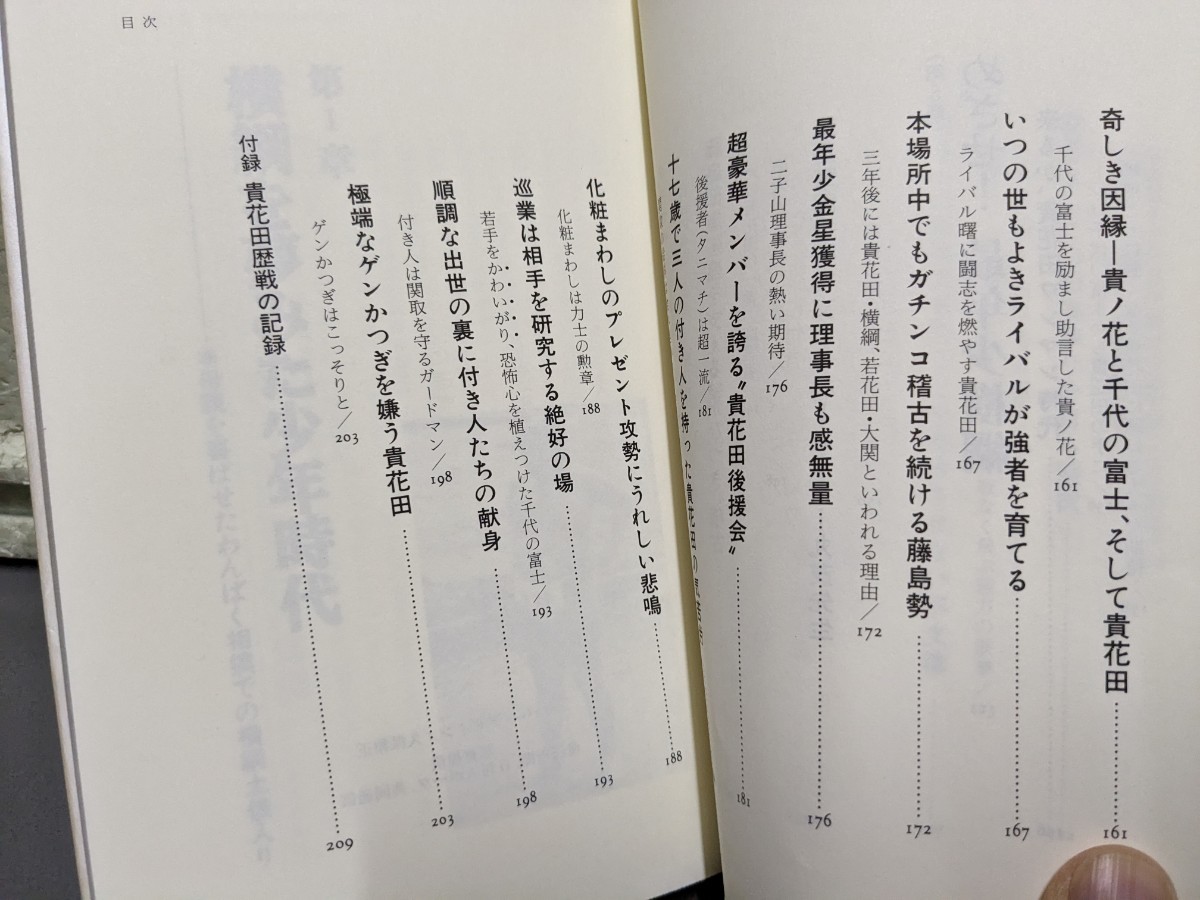 奇しき因縁―貴ノ花と千代の富士、そして貴花田……161
千代の富士を励まし助言した貴ノ花/161
いつの世もよきライバルが強者を育てる……167
ライバル曙に闘志を燃やす貴花田/167
本場所中でもガチンコ稽古を続ける藤島勢……172
三年後には貴花田・横綱、若花田・大関といわれる理由/172
最年少金星獲得に理事長も感無量……176
二子山理事長の熱い期待/176
超豪華メンバーを誇る〝貴花田後援会〟……181
後援者(タニマチ)は超一流/181
十七歳で三人の付き人を持った貴花田の
目次
化粧まわしのプレゼント攻勢にうれしい悲鳴……188
化粧まわしは力士の勲章/188
巡業は相手を研究する絶好の場……193
若手をかわいがり、恐怖心を植えつけた千代の富士/193
順調な出世の裏に付き人たちの献身……198
付き人は関取を守るガードマン/198
極端なゲンかつぎを嫌う貴花田……203
ゲンかつぎはこっそりと/203
付録 貴花田歴戦の記録……209